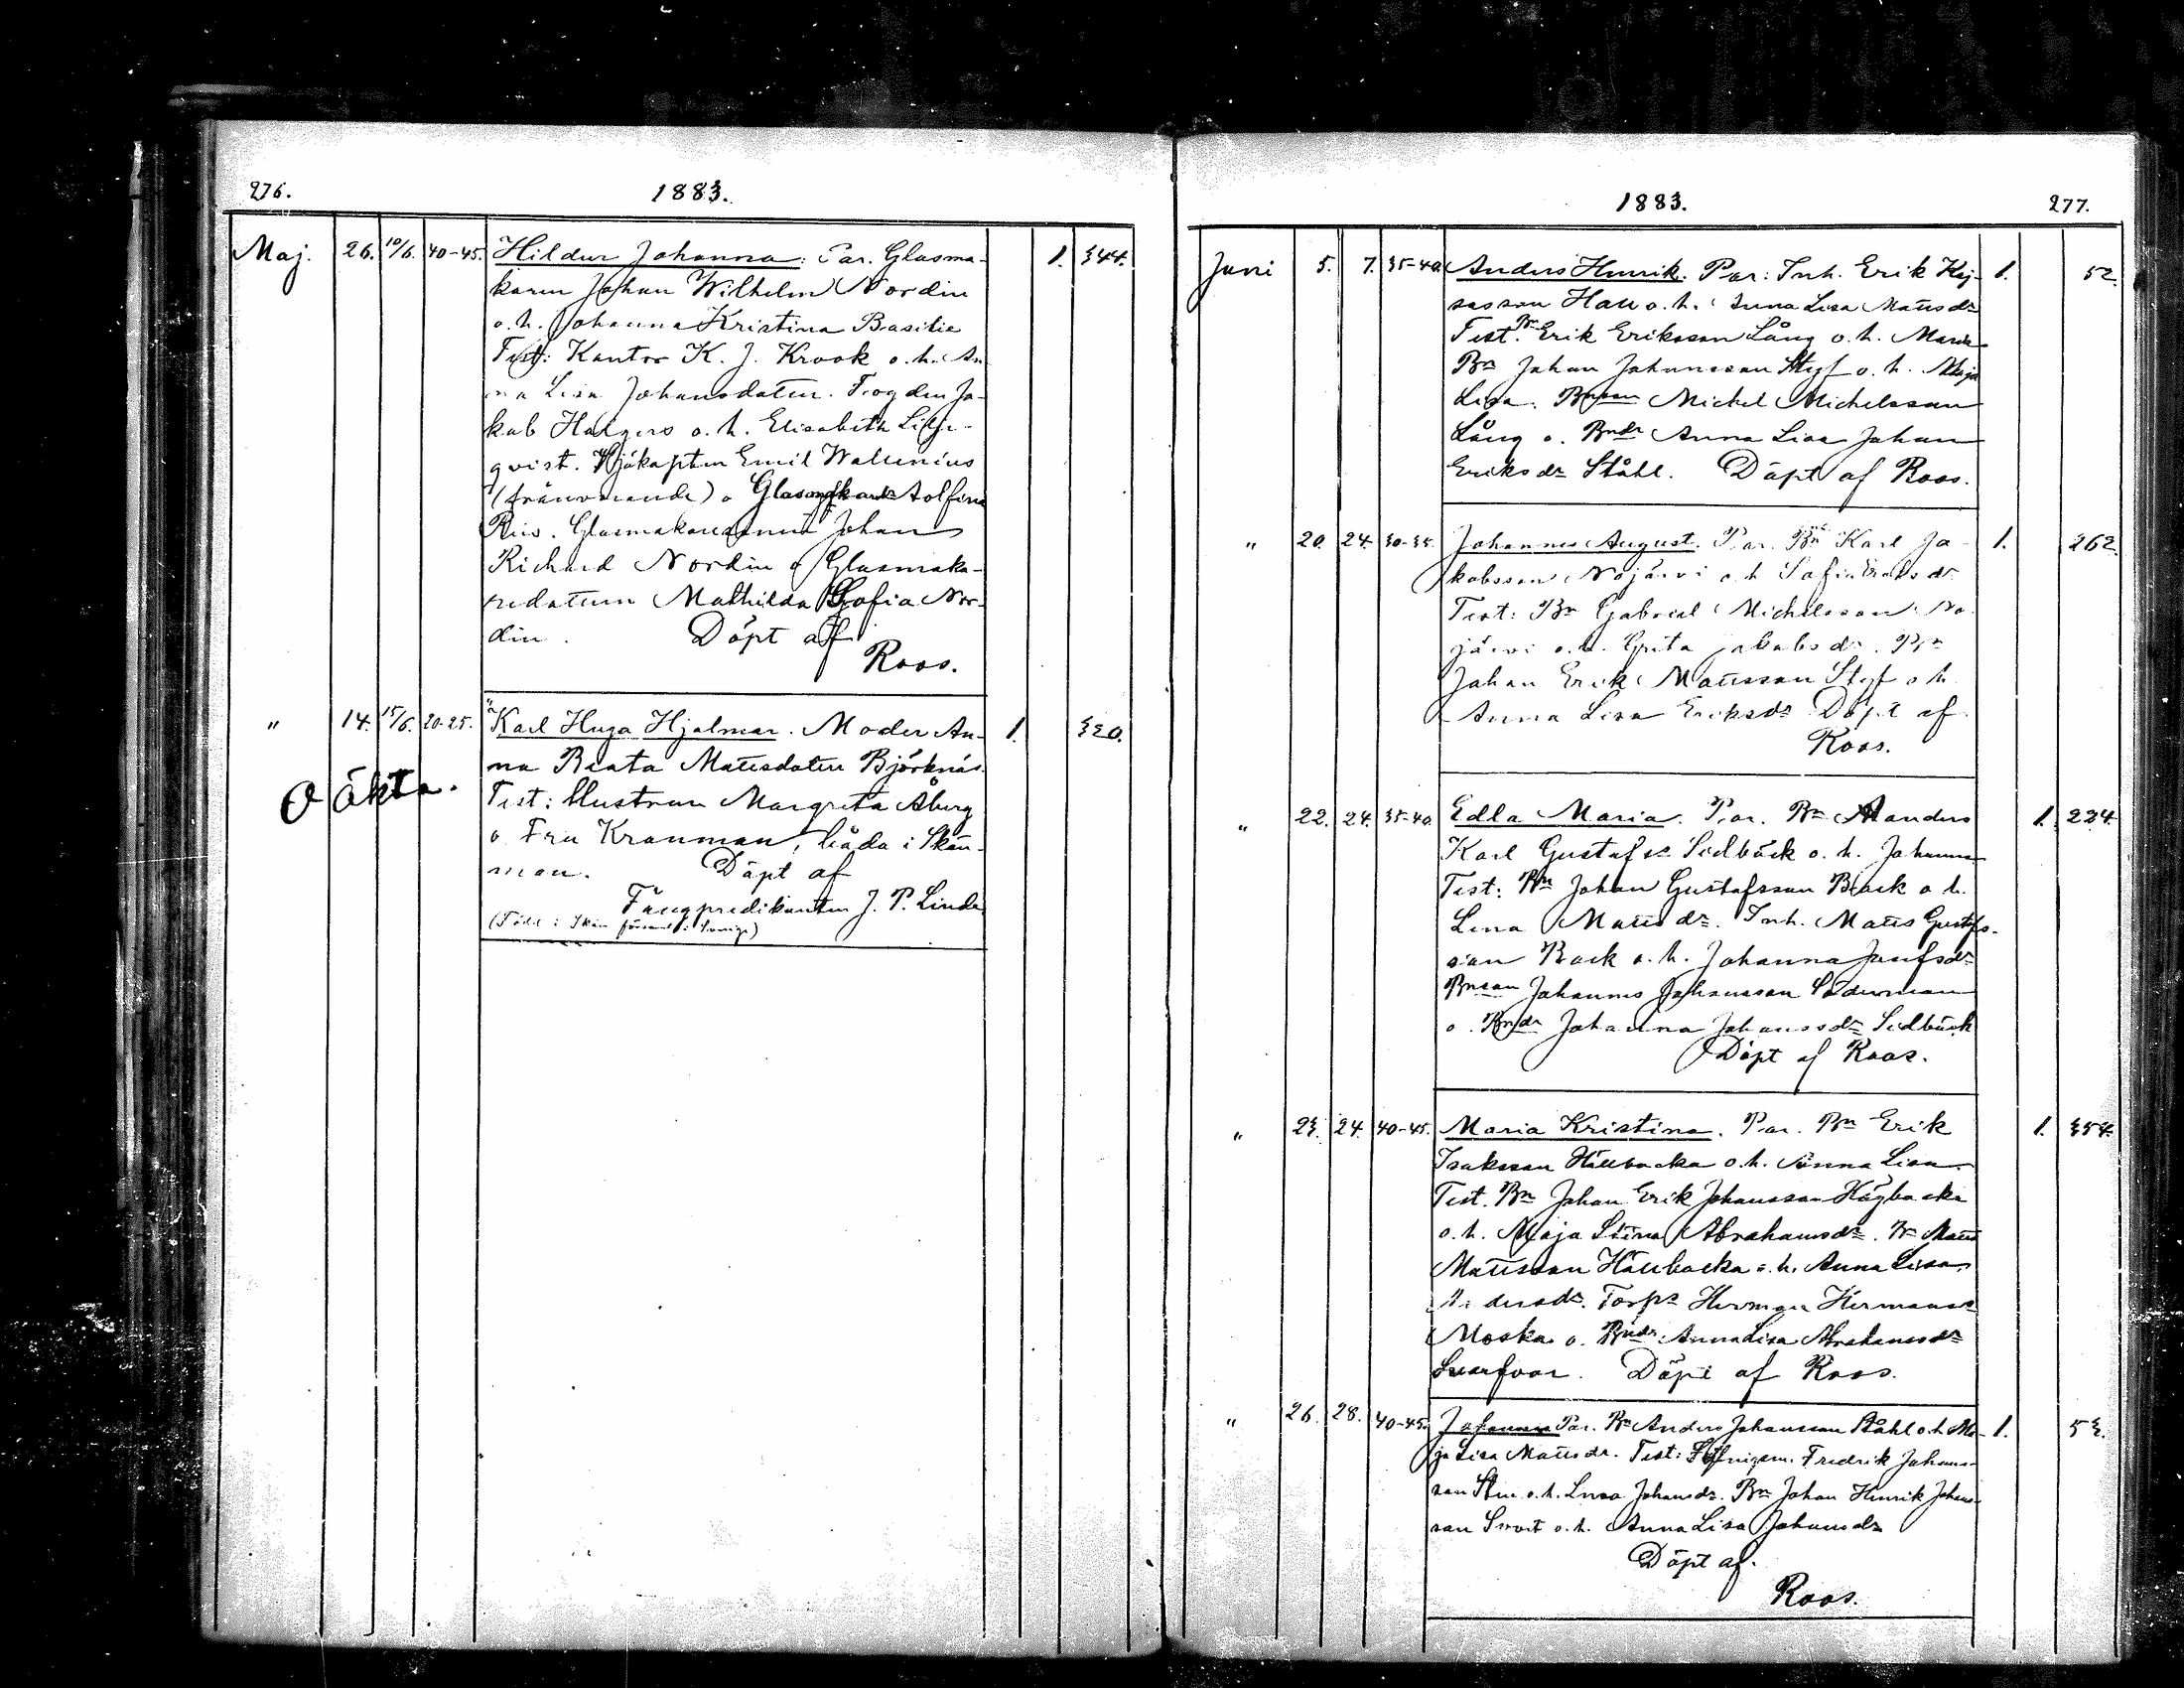 276.
1883.
Maj. 26. 10/6. 40-45. Hildur Johanna: Par. Glasma- 1. 344.
karen Johan Wilhelm Nordin
o. h. Johanna Kristina Basilie
Test: Kantor K. J. Krook o. h. An
na Lisa Johansdatter. Fiogden Ja-
kob Hargers o. h. Elisabeth Lilje-
qvist. Sjökapten Emil Wallenius
(frånvarande) o
Glasmakaresonen Johan
Richard Nordin o Glasmaka-
redattern Mathilda Sofia Nor-
din. Döpt af
Roos.
" 14. 15/6. 20-25. Karl Hugo Hjalmar. Moder An- 1. 320.
na Beata Mattsdatter Björknäs.
Oäkta. Test: Hustrun Margreta Åberg
o Fru Kranman, båda i Skän-
man. Döpt af
Fängpredikanten J. P. Linde
(Född i Skän församl. i Sverige)
1883.
277.
Juni 5. 7. 35-40. Anders Henrik. Par: Inh. Erik Kaj- 1. 52.
sasson Hall o. h. Anna Lisa Mattsdr
Test. Bn Erik Eriksson Lång o. h. Maria
Bn Johan Johansson Styf o. h. Maja
Lisa. Bnson Michel Michelsson
Lång o. Bndr Anna Lisa Johan
Eriksdr Ståhl. Döpt af Roos.
" 20. 24. 30-35. Johannes August. Par. Bn Karl Ja- 1. 262.
kobsson Nojärvi o. h. Sofia Eriksdr
Test: Bn Gabriel Michelsson No
järvi o. h. Greta Jakobsdr. Bn
Johan Erik Mattsson Styf o h
Anna Lisa Eriksdr Döpt af
Roos.
" 22. 24. 35-40. Edla Maria. Par. Bn Anders 1. 224.
Karl Gustafss Sidbäck o. h. Johanna
Test: Bn Johan Gustafsson Back o h.
Lena Mattsdr. Inh. Matts Gustafs-
son Back o. h. Johanna Josefsdr
Bnson Johannes Johansson Söderman
o. Bndr Johanna Johansdr Sidbäck
Döpt af Roos.
" 23. 24. 40-45. Maria Kristina. Par. Bn Erik 1. 354.
Isaksson Hällbacka o. h. Anna Lisa
Test. Bn Johan Erik Johansson Högbacka
o. h. Maja Stina Abrahamsdr. Bn Matts
Mattsson Hällbacka o. h. Anna Lisa
Andersdr. Torpr Herman Hermanss
Moska o. Bndr Anna Lisa Abrahamsdr
Svarfvar. Döpt af Roos.
" 26. 28. 40-45. Johannes Par. Bn Anders Johansson Ståhl o. h. Ma- 1. 53.
ja Lisa Mattsdr. Test: Fredrik Johans-
son o. h. Lovisa Johansdr. Bn Johan Henrik Johans-
son Svart o. h. Anna Lisa Johansdr
Döpt af.
Roos.